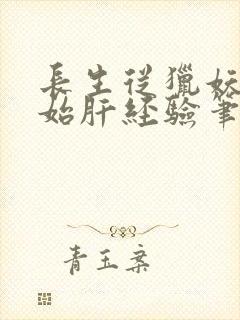 長生從獵妖
始肝經驗筆
青玉案